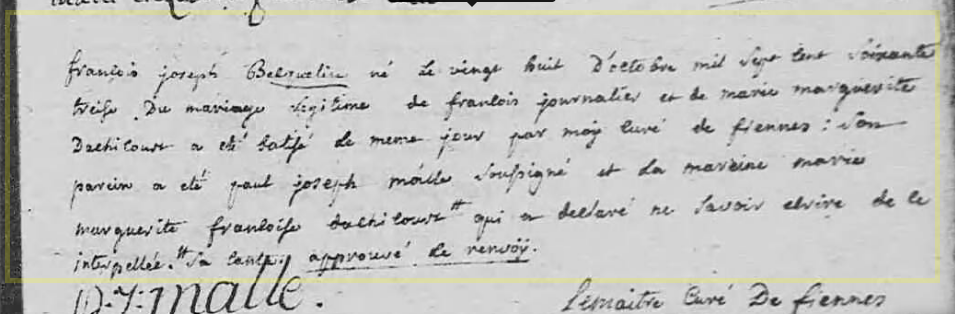 francois joseph Becquelin né le vingt huit D'octobre mil sept cent soixante
treise Du mariage legitime de francois journalier et de marie marguerite
Dachicourt a eté batisé le meme jour par moy curé de fiennes : Son
parein a eté paul joseph malle soussigné et la mareine marie
marguerite francoise dachicourt # qui a declaré ne savoir ecrire de ce
interpellée. # Sa tante. approuvé le renvoÿ.
P. J. malle. Lemaitre Curé De fiennes